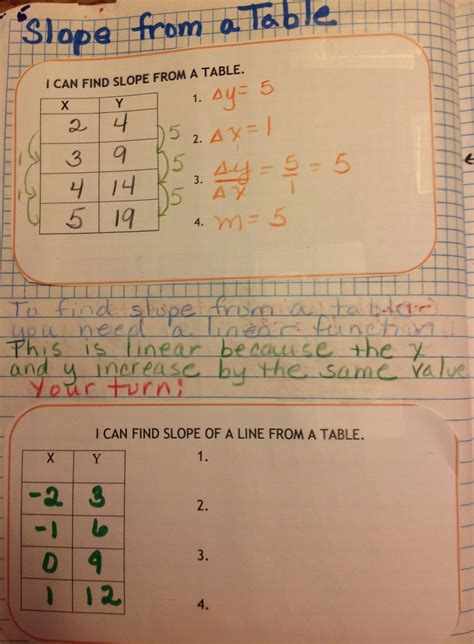 Slope from a Table
I CAN FIND SLOPE FROM A TABLE.
X Y
2 4
3 9
4 14
5 19
1
1
5
5
5
1. Δy = 5
2. Δx = 1
3. Δy/Δx = 5/1 = 5
4. m = 5
To find slope from a table
you need a linear function.
This is linear because the x
and y increase by the same value
Your turn!
I CAN FIND SLOPE OF A LINE FROM A TABLE.
X Y
-2 3
-1 6
0 9
1 12
1.
2.
3.
4.